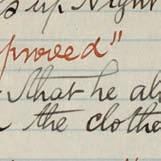 up Night
proved"
That he al
the clothe